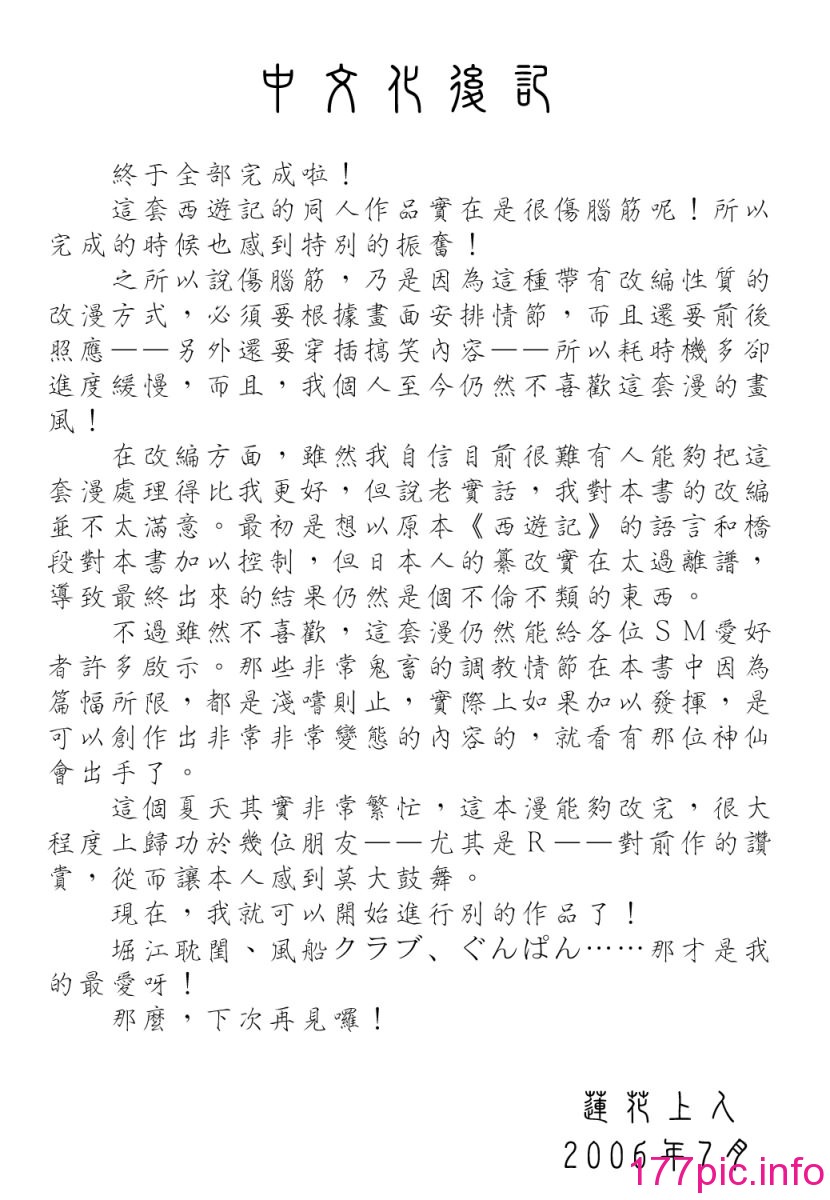 中文化後記
終于全部完成啦！
這套西遊記的同人作品實在是很傷腦筋呢！所以
完成的時候也感到特別的振奮！
之所以說傷腦筋，乃是因為這種帶有改編性質的
改漫方式，必須要根據畫面安排情節，而且還要前後
照應——另外還要穿插搞笑內容——所以耗時機多卻
進度緩慢，而且，我個人至今仍然不喜歡這套漫的畫
風！
在改編方面，雖然我自信目前很難有人能夠把這
套漫處理得比我更好，但說老實話，我對本書的改編
並不太滿意。最初是想以原本《西遊記》的語言和橋
段對本書加以控制，但日本人的纂改實在太過離譜，
導致最終出來的結果仍然是個不倫不類的東西。
不過雖然不喜歡，這套漫仍然能給各位ＳＭ愛好
者許多啟示。那些非常鬼畜的調教情節在本書中因為
篇幅所限，都是淺嚐則止，實際上如果加以發揮，是
可以創作出非常非常變態的內容的，就看有那位神仙
會出手了。
這個夏天其實非常繁忙，這本漫能夠改完，很大
程度上歸功於幾位朋友——尤其是Ｒ——對前作的讚
賞，從而讓本人感到莫大鼓舞。
現在，我就可以開始進行別的作品了！
堀江耽閨、風船クラブ、ぐんぱん……那才是我
的最愛呀！
那麼，下次再見囉！
蓮花上人
2006年7月
177pic.info